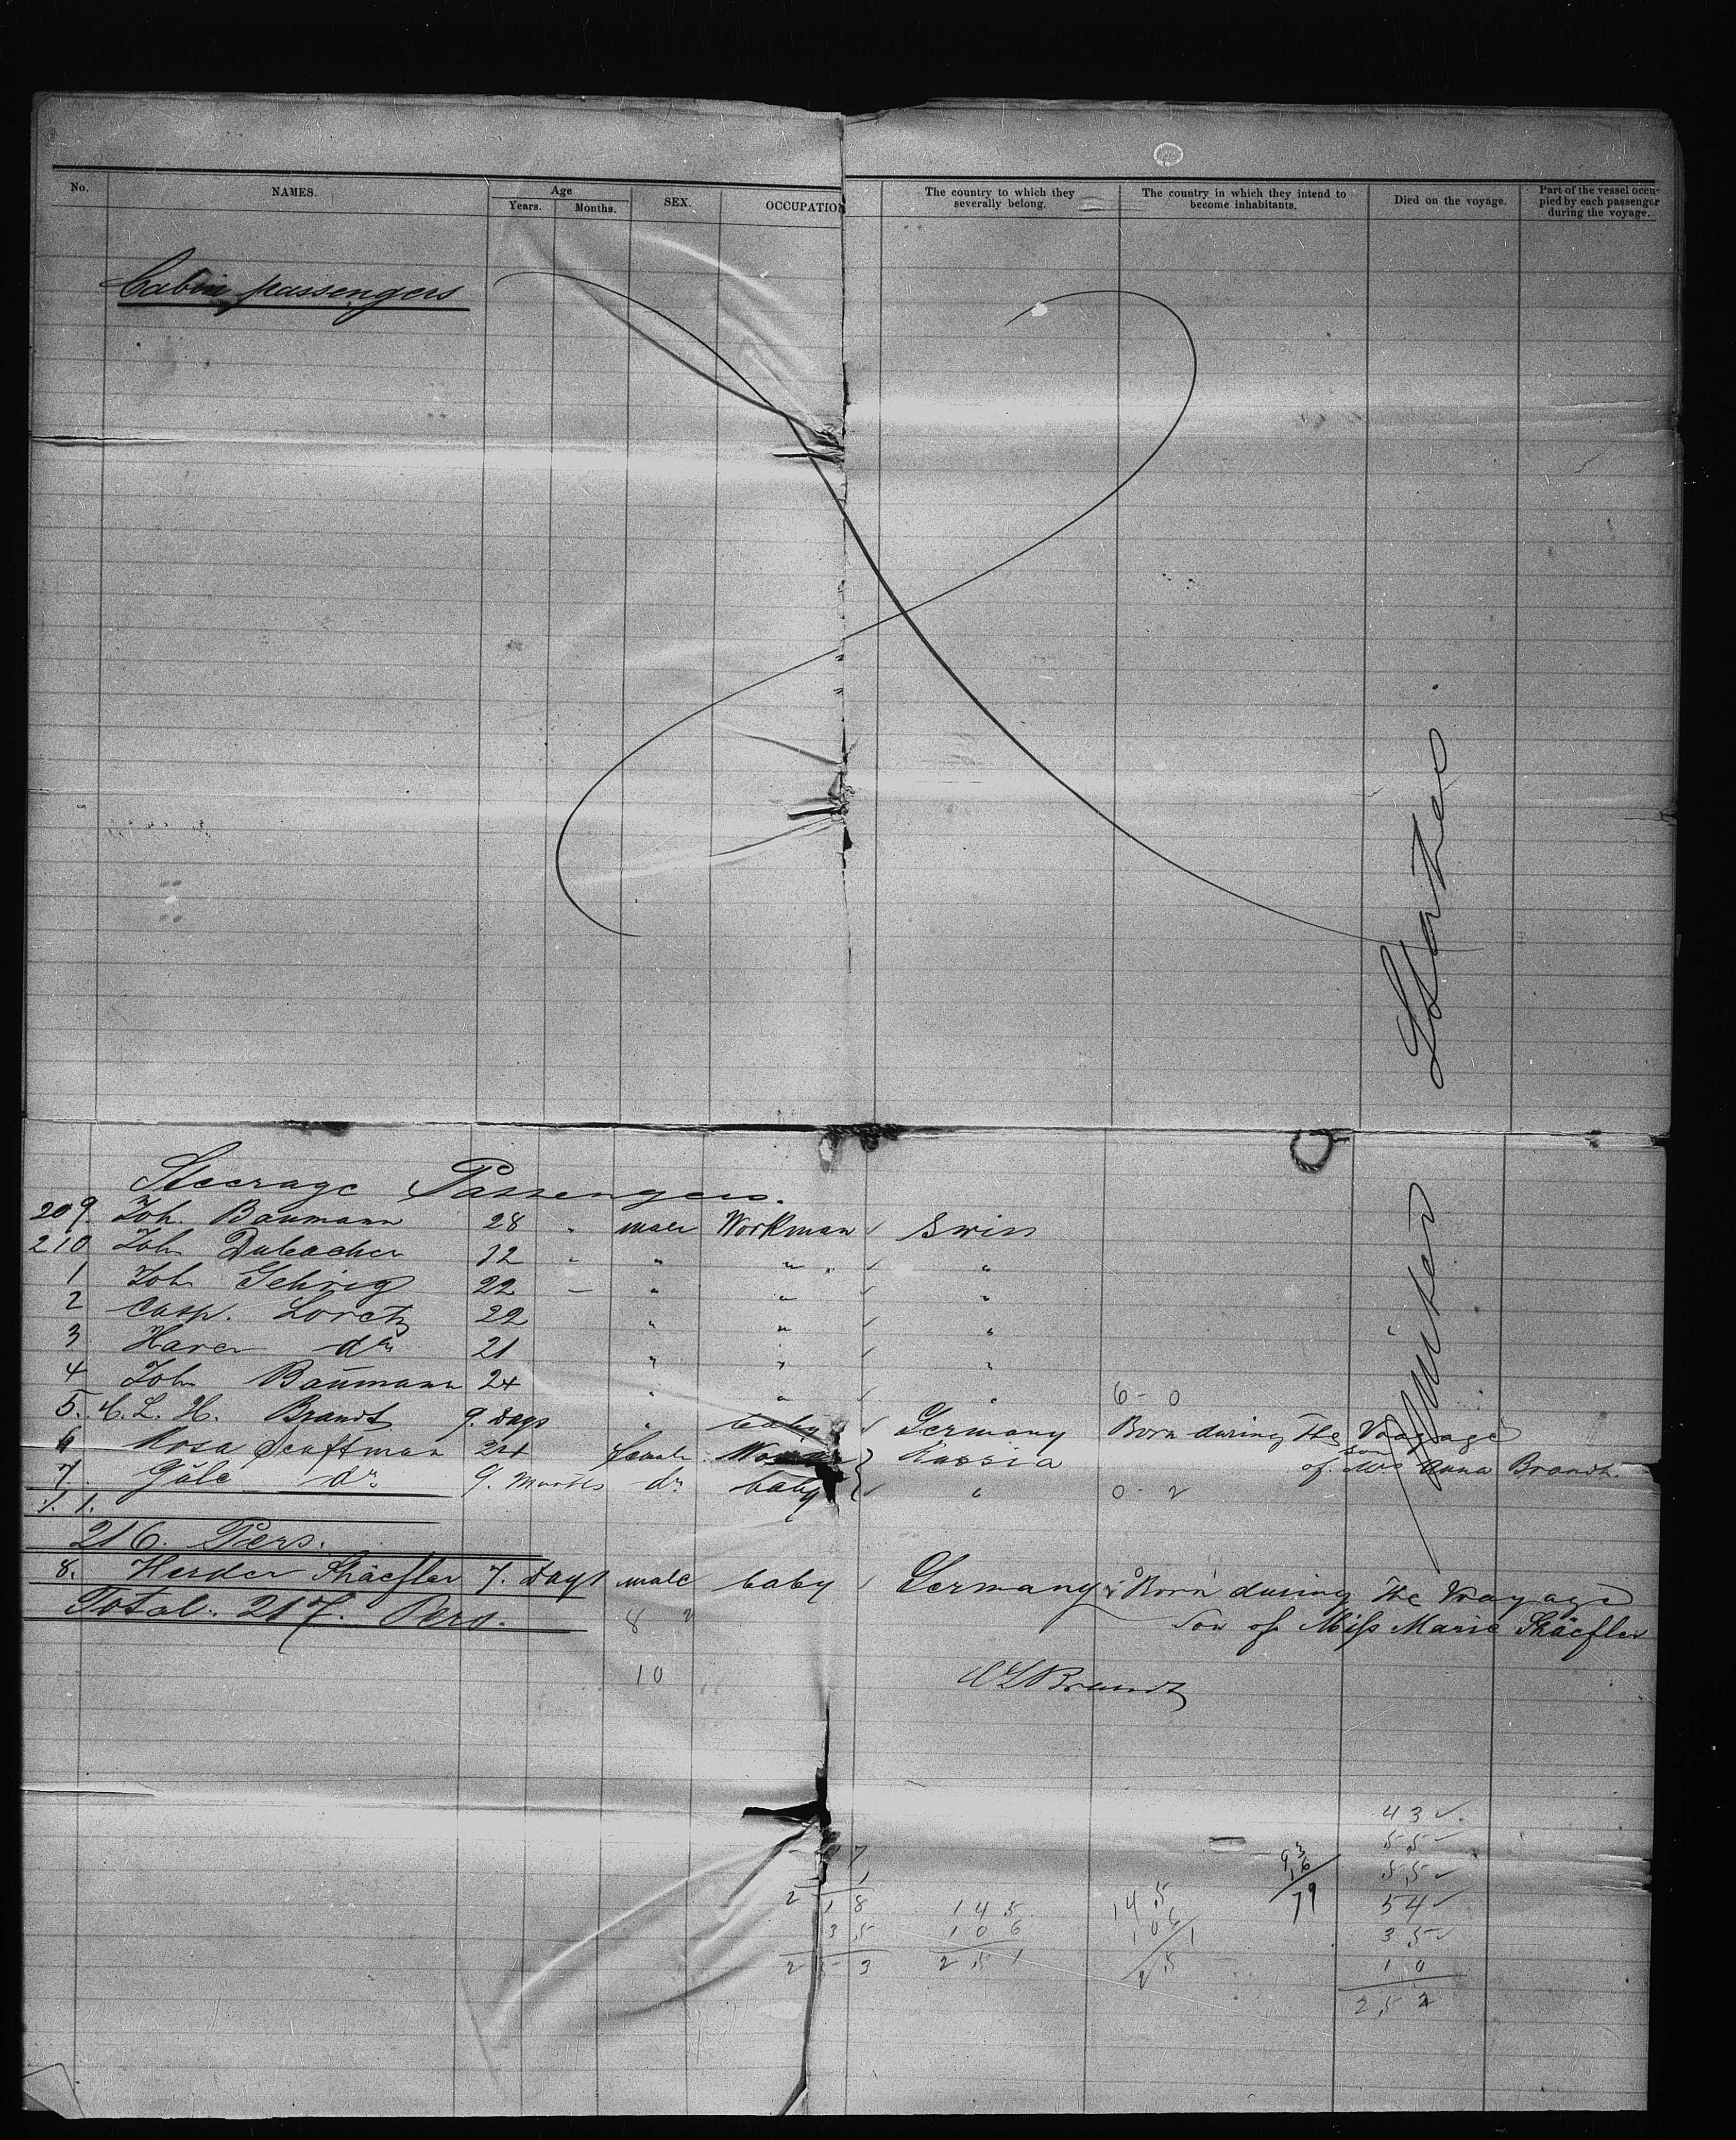 No. NAMES. Age Years. Months. SEX. OCCUPATION The country to which they severally belong. The country in which they intend to become inhabitants. Died on the voyage. Part of the vessel occupied by each passenger during the voyage.
Cabin passengers
United States
Steerage Passengers.
209. Joh. Baumann 28 " male Workman ✓ Swiss
210 Joh 32 " " " ✓ "
1 Joh Gehrig 22 — " " ✓ "
2 Casp. Loretz 22 " " ✓ "
3 do 21 " " ✓ "
4 Joh Baumann 24 " " ✓ " 6 - 0
5. C. L. H. Brandt 9. Days " baby ✓ Germany Born during the Voyage
son
6 Rosa 24 female Russia of Mrs Anna Brandt
7. do 9. Months do baby ✓ " 0 - 2
1. 1.
216. Pers.
8. Schäefler 7. Days male baby ✓ Germany Born during the Voyage
Total. 217. Pers. 8 2 Son of Miss Marie Schäefler
10 C L Brandt
43 ✓
55
93 7 55 ✓
16 1
79 54 ✓
218 145 145
35 106 106 35
253 251 25 10
252